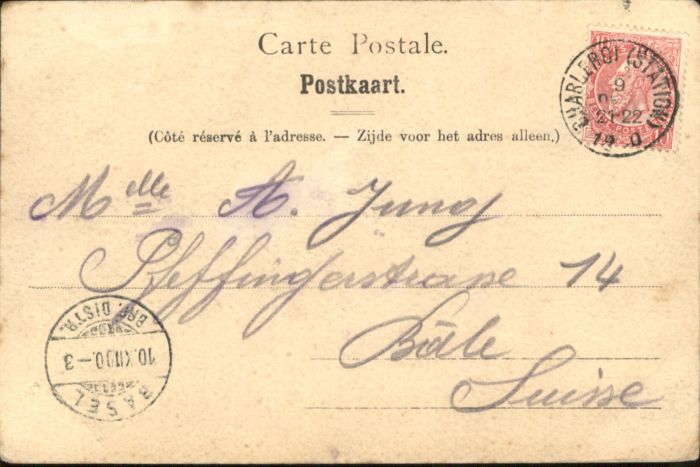 Carte Postale.
Postkaart.
(Côté réservé à l'adresse. — Zijde voor het adres alleen.)
CHARLEROI (STATION)
9
21-22
Melle A. Jung
Pfeffingerstrasse 14
Bâle
Suisse
BRF. DISTR.
10.XII.00.-3
BASEL